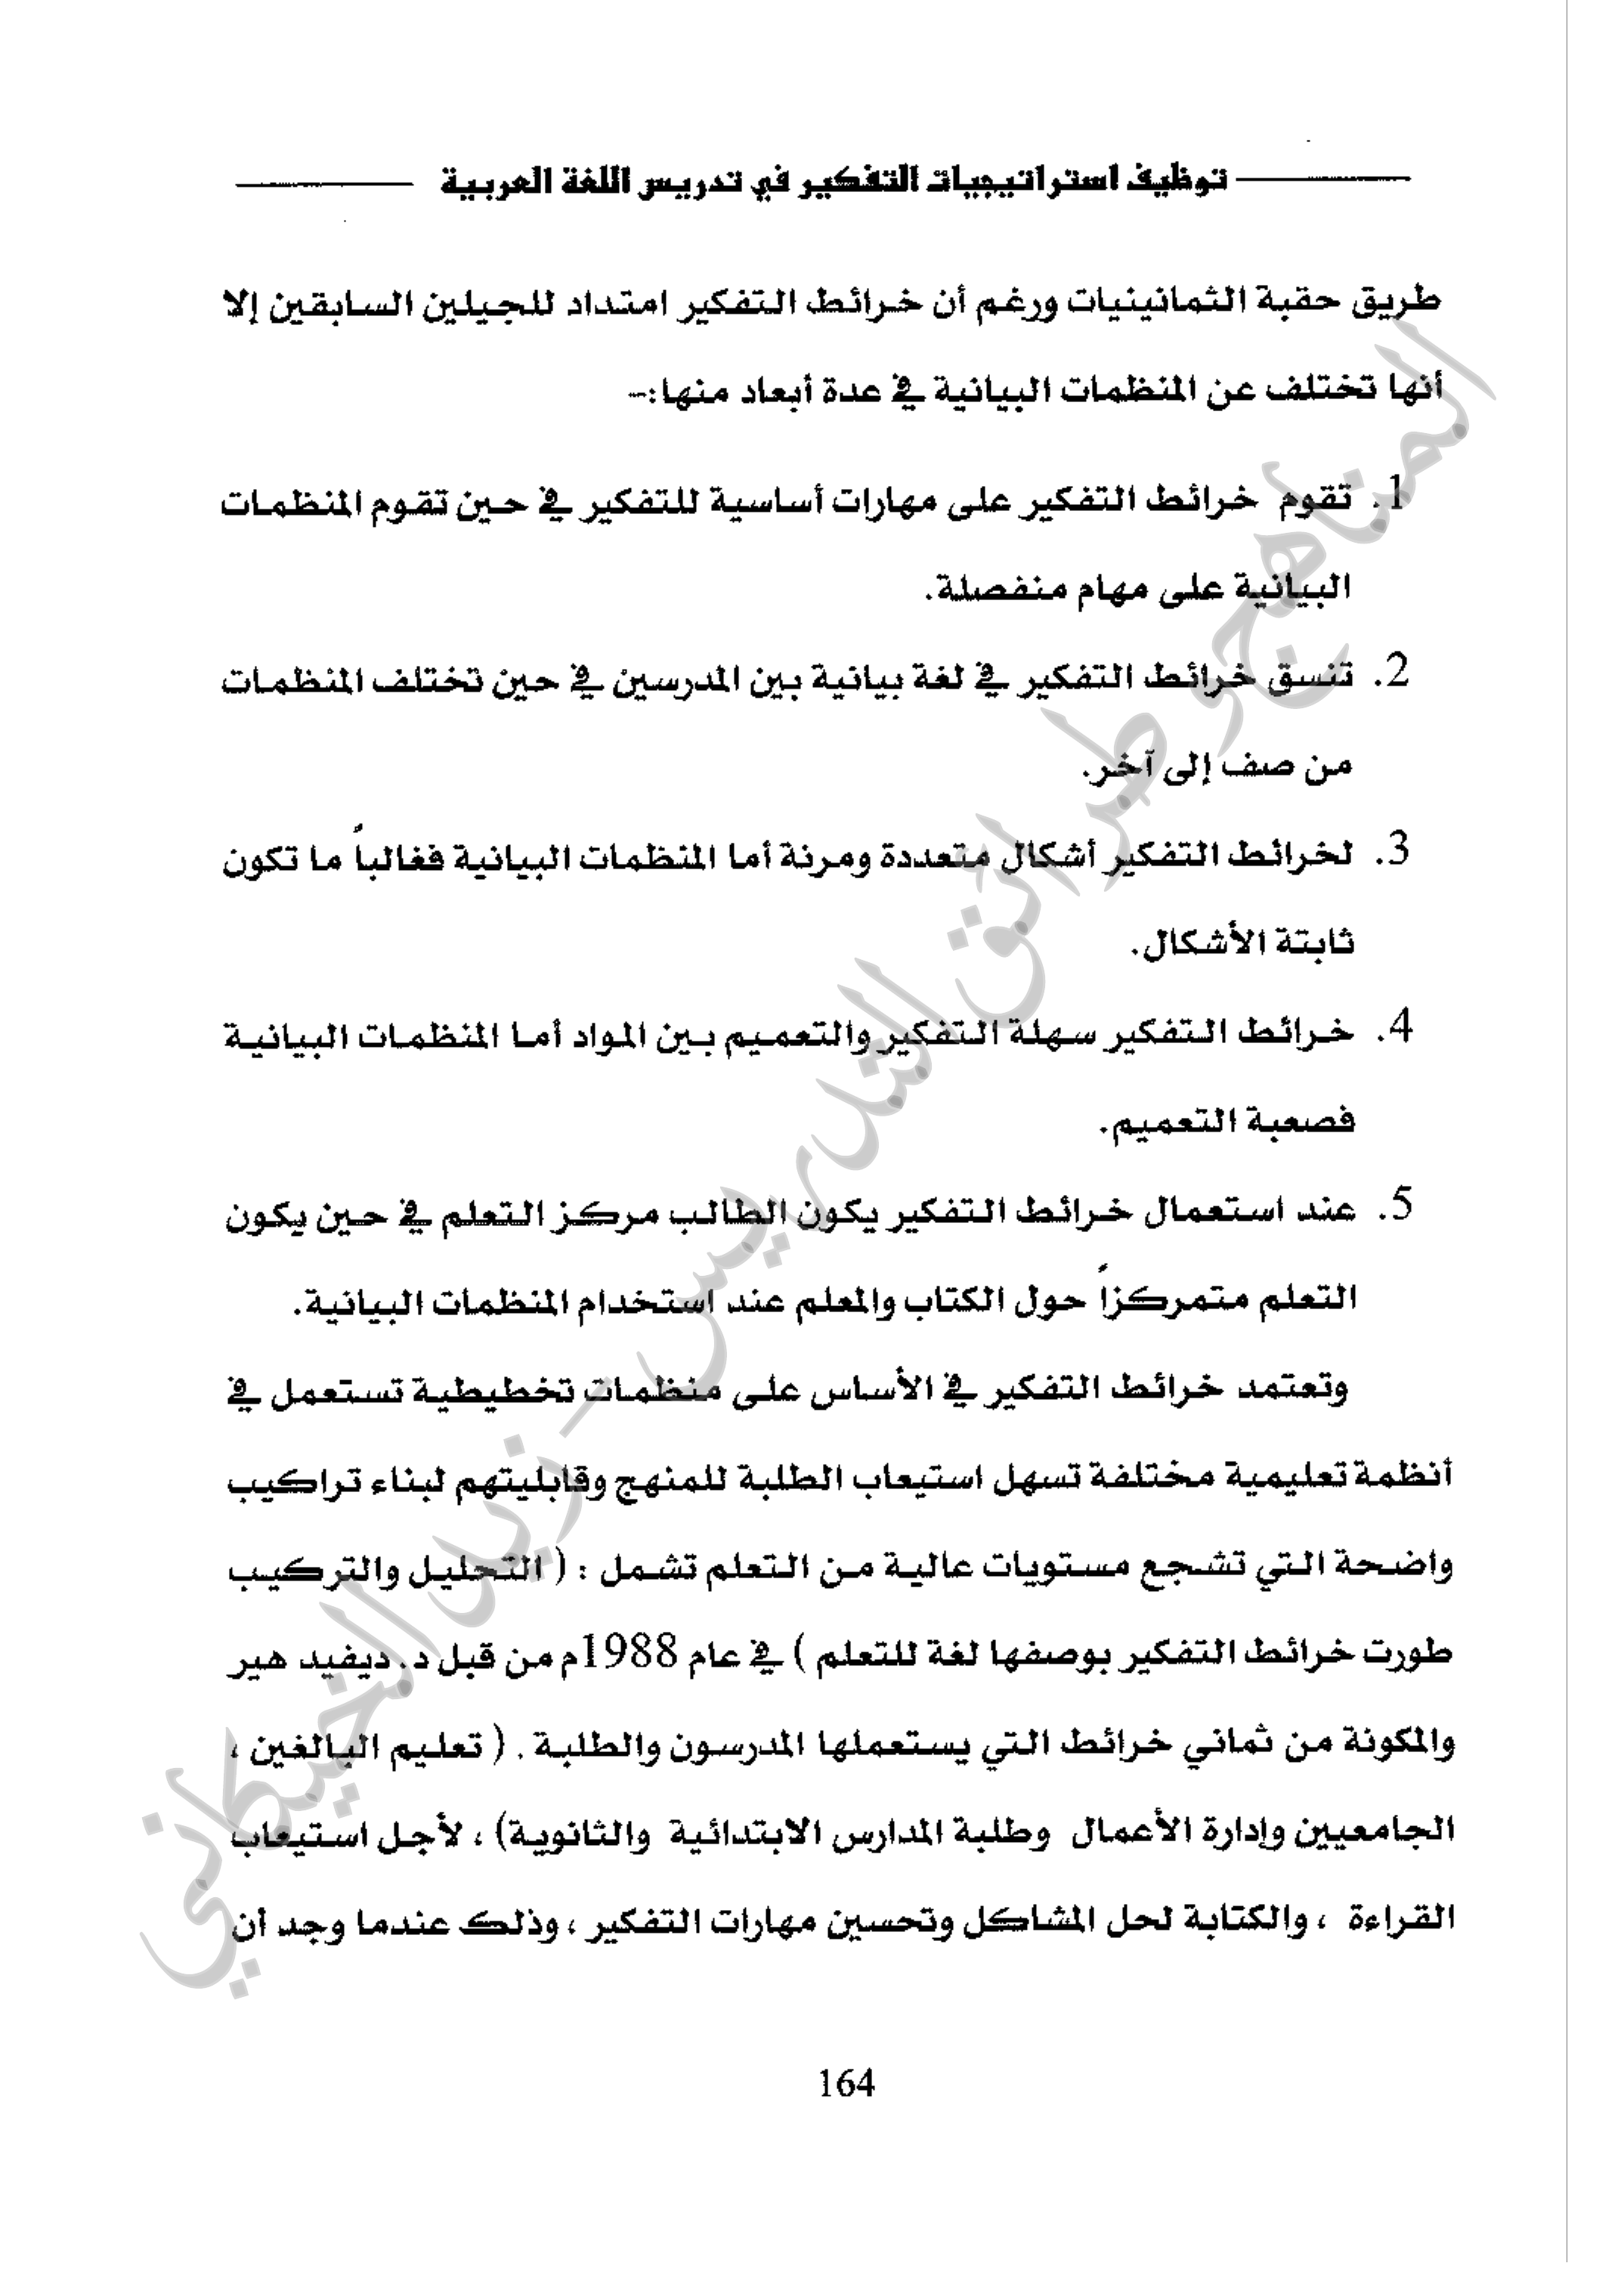 توظيف استراتيجيات التفكير في تدريس اللغة العربية
طريق حقبة الثمانينيات ورغم أن خرائط التفكير امتداد للجيلين السابقين إلا
أنها تختلف عن المنظمات البيانية في عدة أبعاد منها:-
1. تقوم خرائط التفكير على مهارات أساسية للتفكير في حين تقوم المنظمات
البيانية على مهام منفصلة.
2. تنسق خرائط التفكير في لغة بيانية بين المدرسين في حين تختلف المنظمات
من صف إلى آخر.
3. لخرائط التفكير أشكال متعددة ومرنة أما المنظمات البيانية فغالباً ما تكون
ثابتة الأشكال.
4. خرائط التفكير سهلة التفكير والتعميم بين المواد أما المنظمات البيانية
فصعبة التعميم.
5. عند استعمال خرائط التفكير يكون الطالب مركز التعلم في حين يكون
التعلم متمركزاً حول الكتاب والمعلم عند استخدام المنظمات البيانية.
وتعتمد خرائط التفكير في الأساس على منظمات تخطيطية تستعمل في
أنظمة تعليمية مختلفة تسهل استيعاب الطلبة للمنهج وقابليتهم لبناء تراكيب
واضحة التي تشجع مستويات عالية من التعلم تشمل : ( التحليل والتركيب
طورت خرائط التفكير بوصفها لغة للتعلم ) في عام 1988م من قبل د. ديفيد هير
والمكونة من ثماني خرائط التي يستعملها المدرسون والطلبة . ( تعليم البالغين ،
الجامعيين وإدارة الأعمال وطلبة المدارس الابتدائية والثانوية) ، لأجل استيعاب
القراءة ، والكتابة لحل المشاكل وتحسين مهارات التفكير ، وذلك عندما وجد أن
164
المناهج وطرائق التدريس - زيد الخيكاني